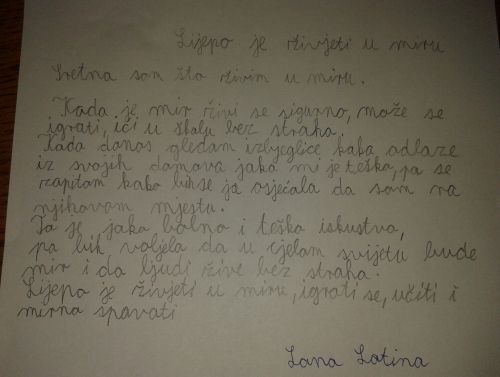 Lijepo je živjeti u miru
Sretna sam što živim u miru.
Kada je mir živi se sigurno, može se
igrati, ići u školu bez straha.
Kada danas gledam izbjeglice kako odlaze
iz svojih domova jako mi je teško, pa se
zapitam kako bih se ja osjećala da sam na
njihovom mjestu.
To je jako bolno i teško iskustvo,
pa bih voljela da u cijelom svijetu bude
mir i da ljudi žive bez straha.
Lijepo je živjeti u miru, igrati se, učiti i
mirno spavati
Lana Latina